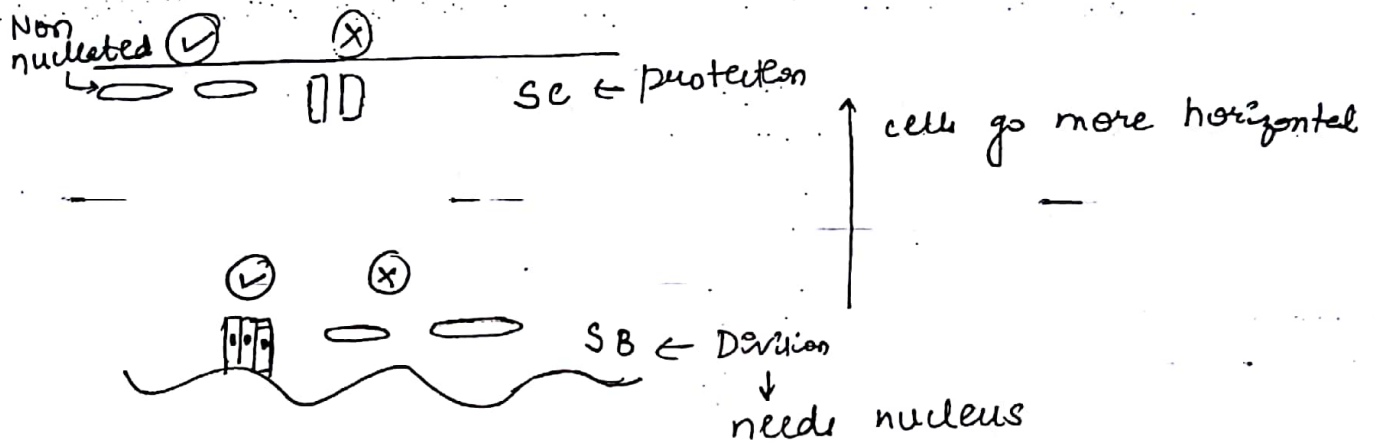 Non
nucleated
SC ← protection
cells go more horizontal
SB ← Division
↓
needs nucleus